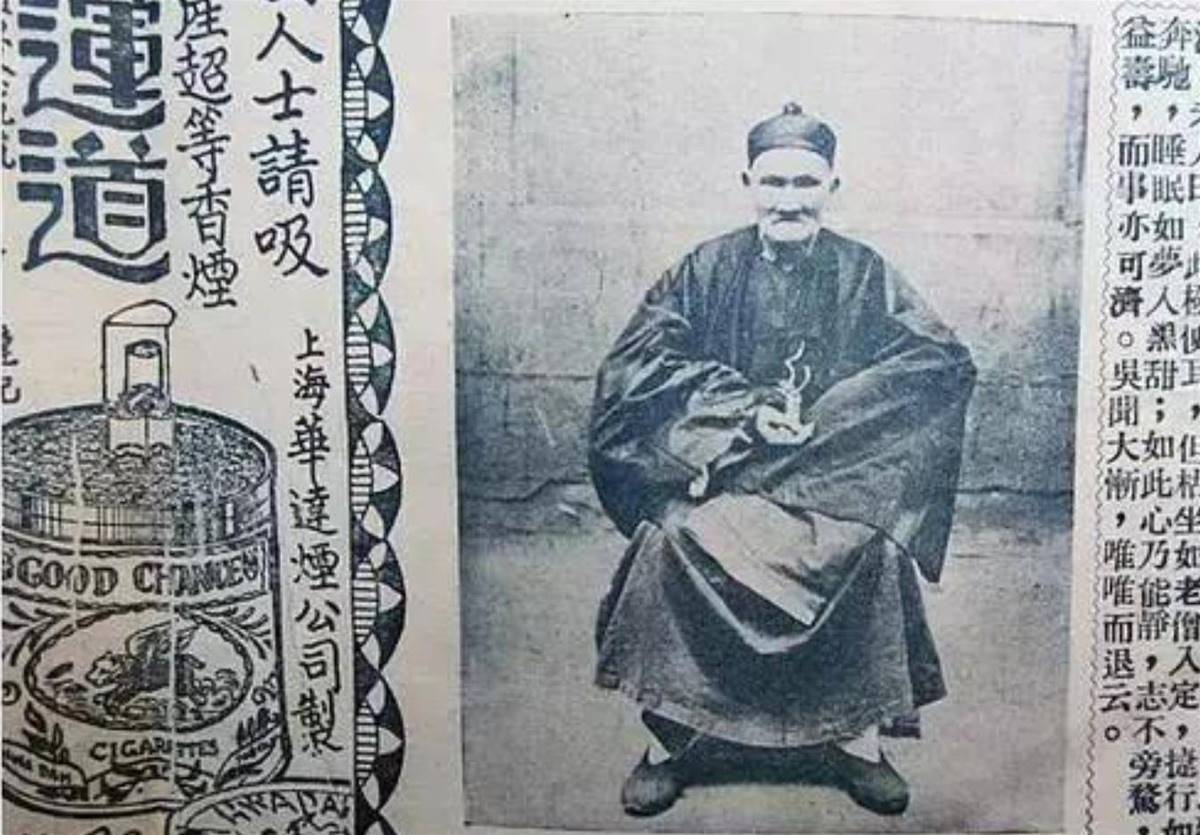 坐如老僧入定，
奔馳，睡眠如夢人黑甜；如此心乃能靜，志不旁騖，
益壽，而事亦可濟。吳聞大慚，唯唯而退云。
人士請吸
產超等香煙
運道
上海華達煙公司製
GOOD CHANCE
CIGARETTES